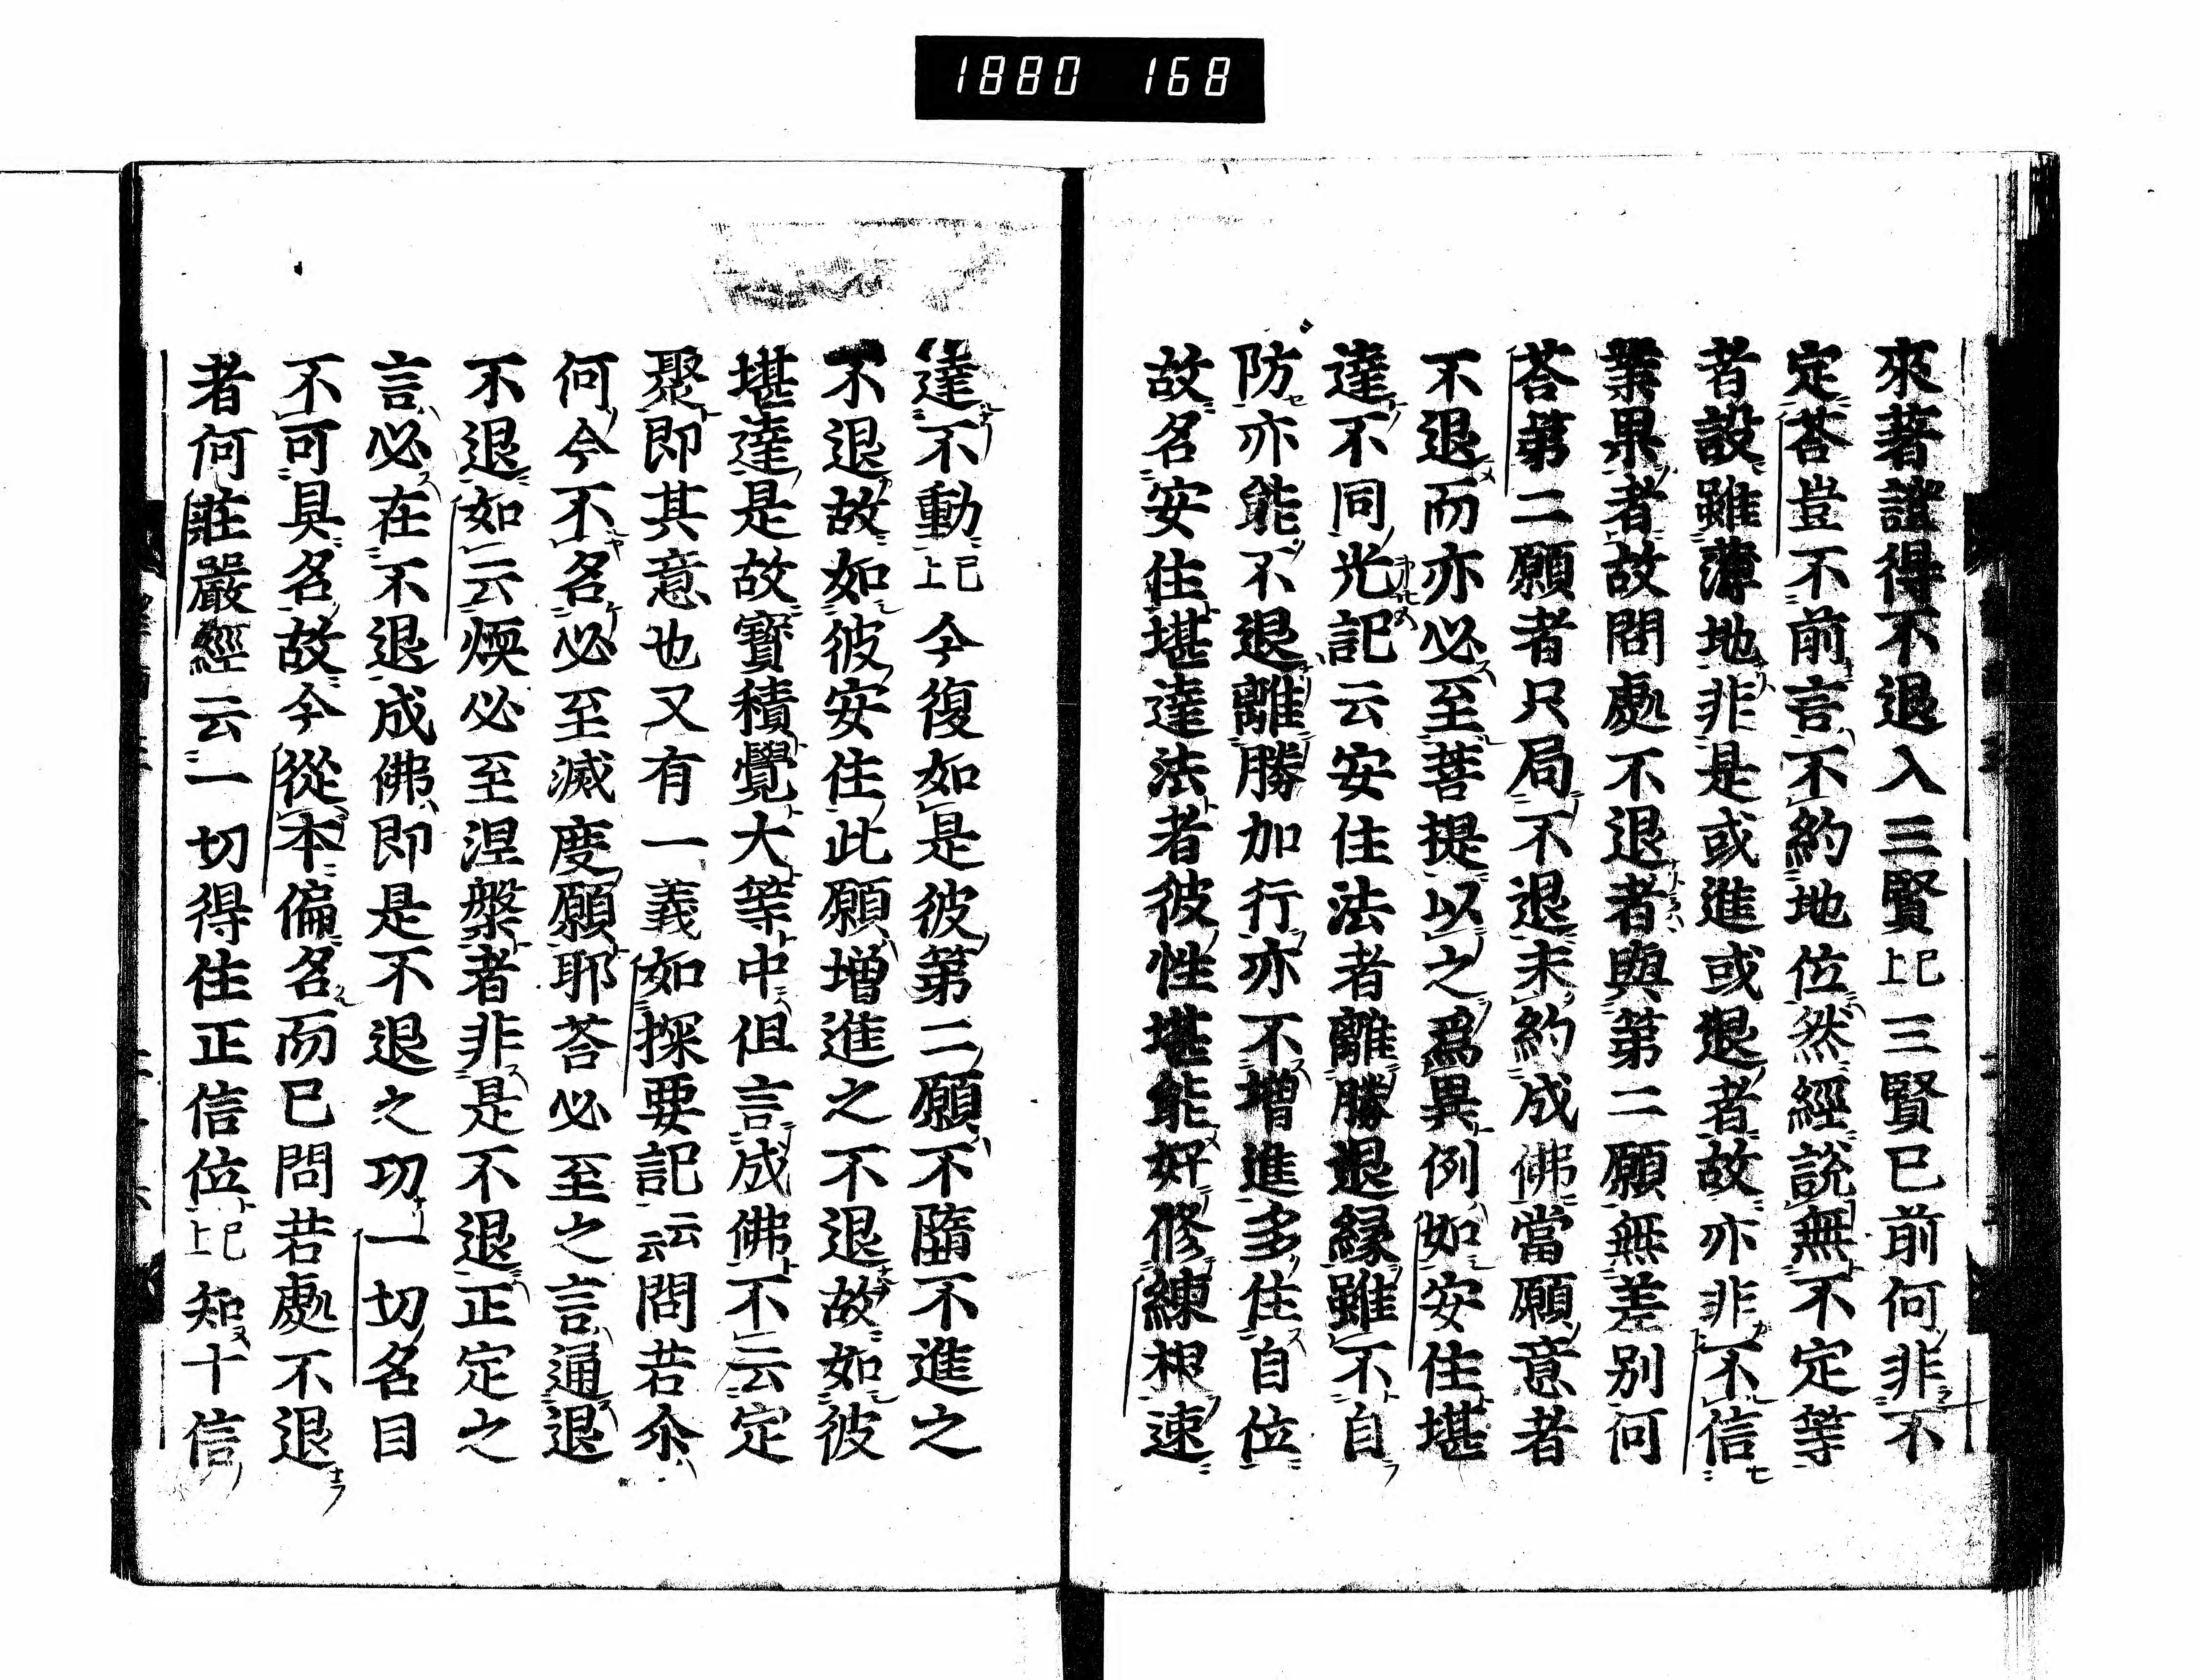 1880 168
來著證得不退入三賢已上三賢已前何非不
定荅豈不前言不約地位然經說無不定等
者設雖薄地非是或進或退者故亦非不信
業果者故問處不退者與第二願無差別何
荅第二願者只局不退末約成佛當願意者
不退而亦必至菩提以之爲異例如安住堪
達不同光記云安住法者離勝退緣雖不自
防亦能不退離勝加行亦不增進多住自位
故名安住堪達法者彼性堪能好修練根速
達不動已上今復如是彼第二願不墮不進之
不退故如彼安住此願增進之不退故如彼
堪達是故寶積覺大等中但言成佛不云定
聚即其意也又有一義如探要記云云問若尒
何今不名必至滅度願耶荅必至之言通退
不退如云煗必至涅槃者非是不退正定之
言必在不退成佛即是不退之功一切名目
不可具名故今從本偏名而已問若處不退
者何莊嚴經云一切得住正信位已上知十信